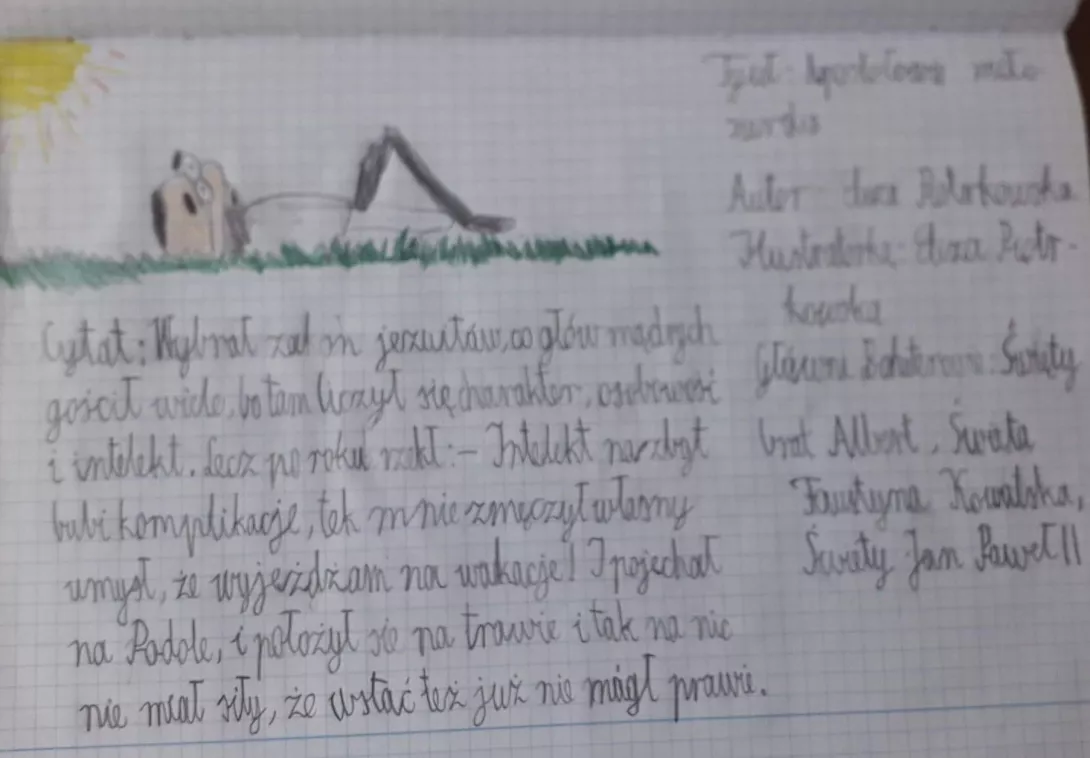 Tytuł: Apostołowie miło
sierdzia
Autor: Eliza Piotrkowska
Ilustratorka: Eliza Piotr-
kowska
Główni Bohaterowie: Święty
brat Albert, Święta
Faustyna Kowalska,
Święty Jan Paweł II
Cytat: Wybrał zakon jezuitów, co głów mądrych
gościł wiele, bo tam liczył się charakter, osobowość
i intelekt. Lecz po roku rzekł: - Intelekt nazbyt
lubi komplikacje, tak mnie zmęczył własny
umysł, że wyjeżdżam na wakacje! I pojechał
na Podole, i położył się na trawie i tak na nic
nie miał siły, że wstać też już nie mógł prawie.